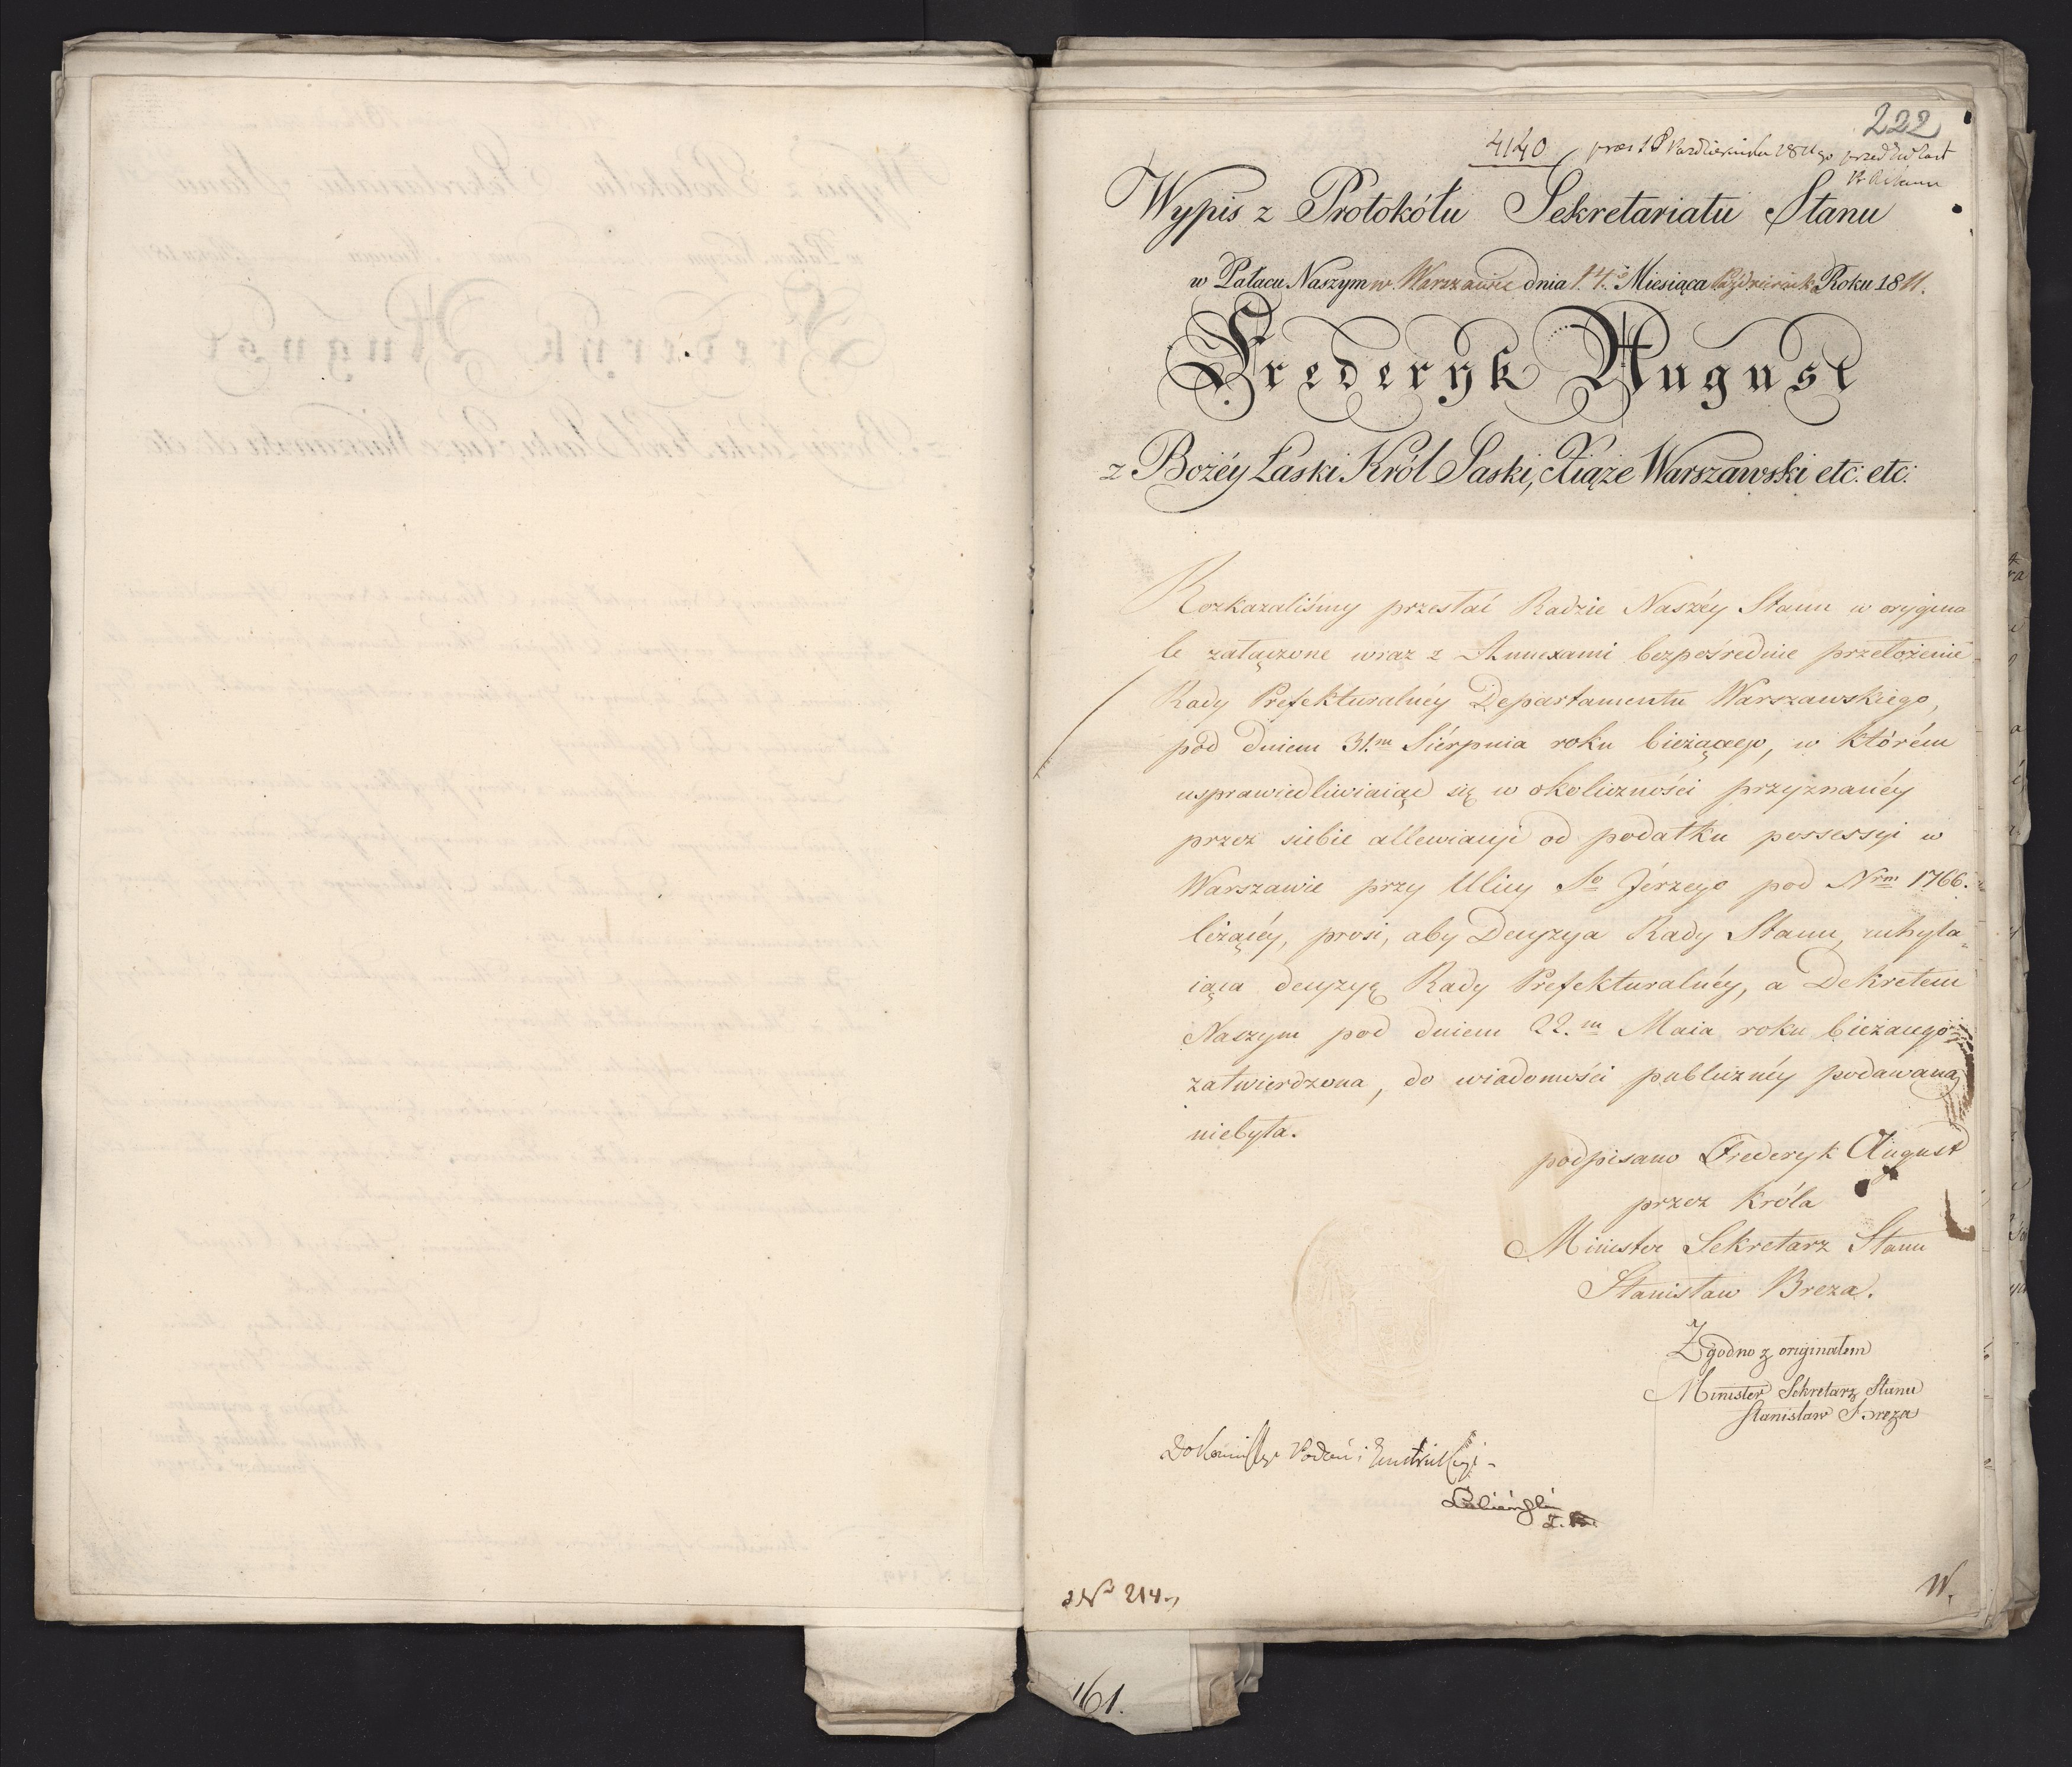 222
4140 / praes 18 Października 1811go
Wypis z Protokółu Sekretariatu Stanu
w Pałacu Naszym w Warszawie dnia 14. Miesiąca Października Roku 1811.
Frederyk August
z Bożéy Łaski Król Saski, Xiąże Warszawski etc: etc:
Rozkazaliśmy przesłać Radzie Naszéy Stanu w orygina
le załączone wraz z Annexami bezpośrednie przełożenie
Rady Prefekturalnéy Departamentu Warszawskiego,
pod dniem 31.m Siérpnia roku bieżącego, w którém
usprawiedliwiaiąc się w okoliczności przyznanéy
przez siebie allewiacyi od podatku possessyi w
Warszawie przy Ulicy So Jérzego pod Nrm 1766.
leżącéy, prosi, aby Decyzya Rady Stanu, uchyla=
iąca decyzyę Rady Prefekturalnéy, a Dekretem
Naszym pod dniem 22.m Maia roku bieżącego
zatwierdzona, do wiadomości publicznéy podawaną
niebyła.
podpisano Frederyk August
przez Króla
Minister Sekretarz Stanu
Stanisław Breza.
Zgodno z originałem
Minister Sekretarz Stanu
Stanisław Breza
Do Kommissyi Podań i Instrukcyi -
Łubieński
No 214.
W.
161.